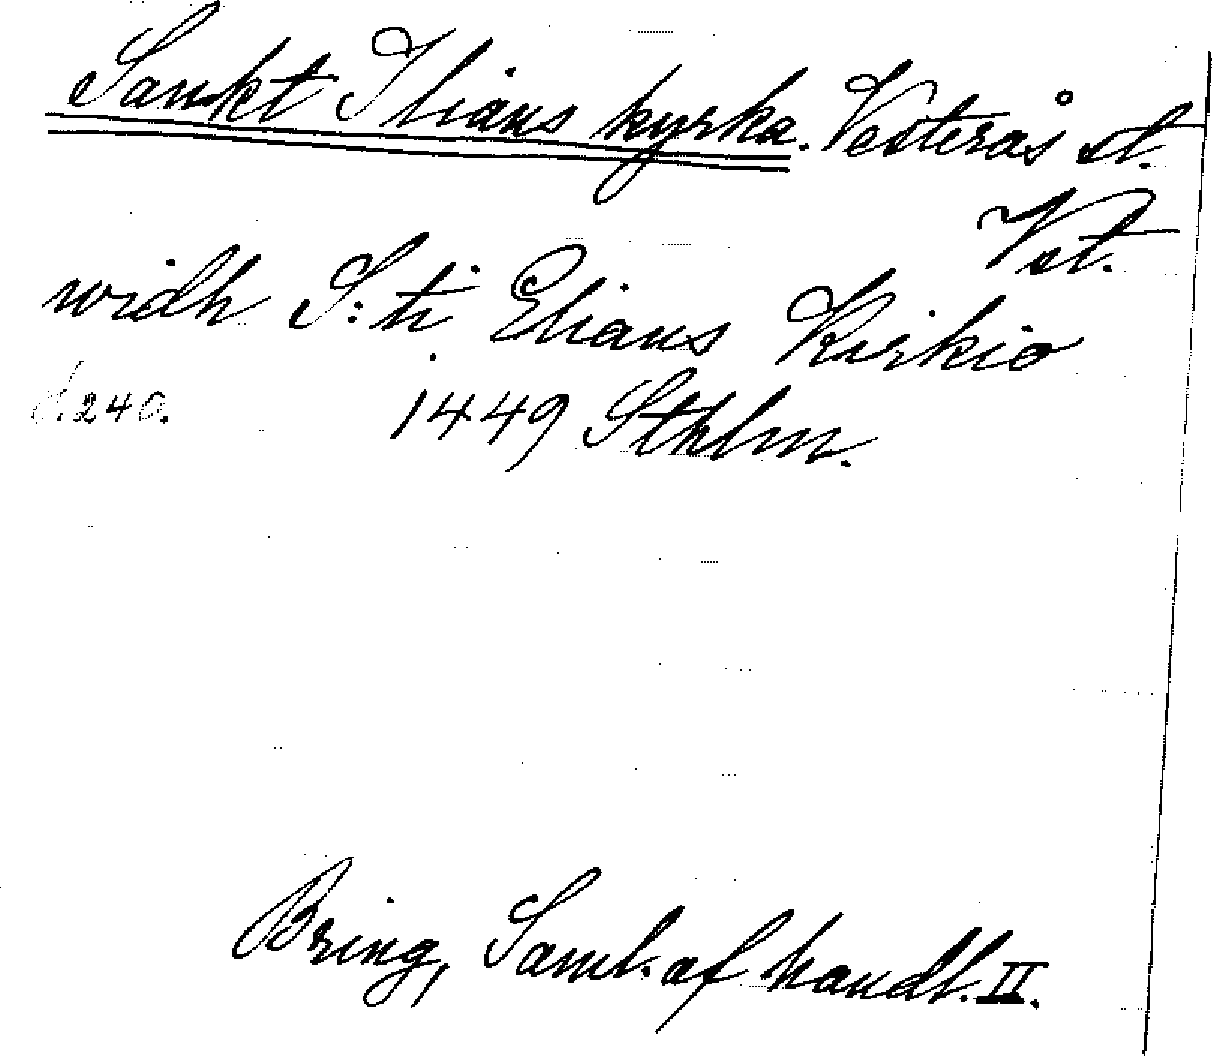 Sankt Ilians kyrka. Vesterås st.
Vst.
widh S:ti Elians Kirkio
d. 240. 1449 Sthlm.
Bring, Saml. af handl. II.